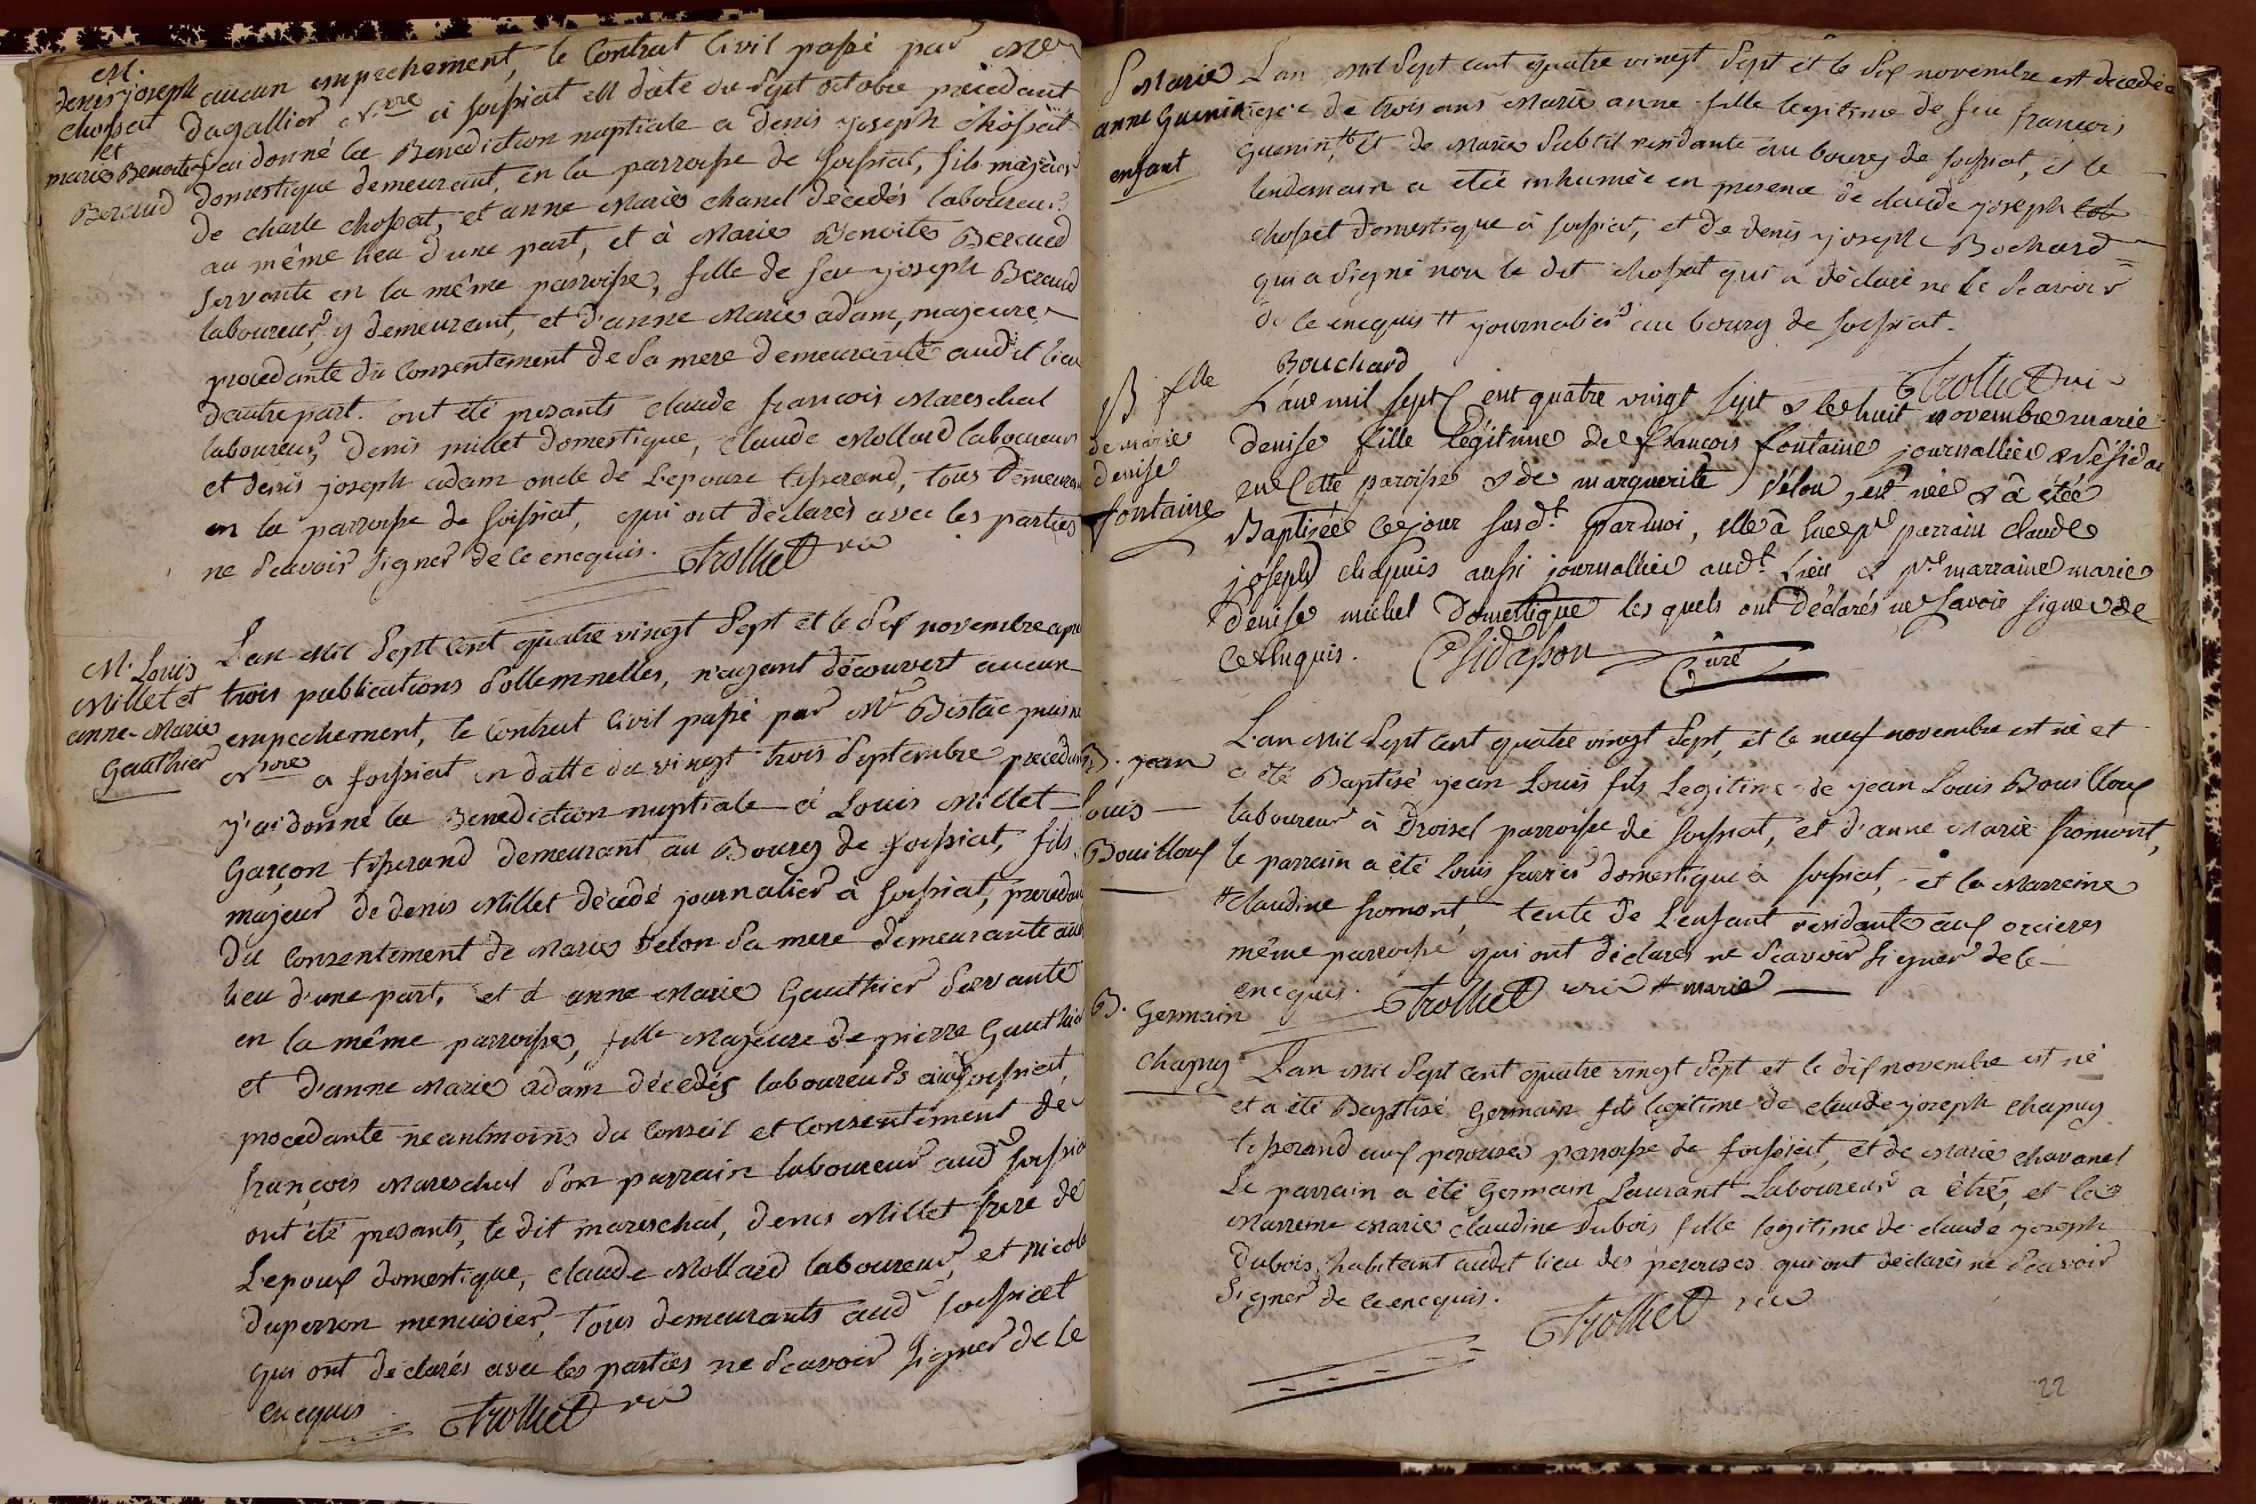 M.
denis joseph
chossat
et
marie Benoite
Beraud
aucun empechement, le Contrat Civil passé par Me
dagallier Nre a foissiat en date du Sept octobre précedant
j'ai donné la Benediction nuptiale a denis joseph chossat
domestique demeurant en la parroisse de foissiat, fils majeur
de charle chossat, et anne Marie chanel décedés laboureurs
au même lieu d'une part, et à Marie Benoite Beraud
servante en la même parroisse, fille de feu joseph Beraud
laboureur y demeurant, et d'anne Marie adam, majeure
procedante du Consentement de Sa mere demeurante audit lieu
d'autre part. ont été presants claude francois Mareschal
laboureur, denis millet domestique, claude Mollard laboureur
et denis joseph adam oncle de L'epouse tisserand, tous demeurants
en la parroisse de foissiat, qui ont declarés avec les parties
ne Scavoir Signer de ce enequis. Trolliet vic
M. Louis
Millet et
anne-Marie
Gauthier
L'an Mil Sept Cent quatre vingt Sept et le Six novembre apres
trois publications Sollemnelles, n'ayant découvert aucun
empechement, le Contrat Civil passé par Me Bistac puisne
Nre a foissiat en datte du vingt trois Septembre precedant
j'ai donné la Benediction nuptiale à Louis Millet
Garçon tisserand demeurant au Bourg de foissiat, fils
majeur de denis Millet décedé journalier à foissiat, procedant
du Consentement de Marie Velon Sa mere demeurante aud
lieu d'une part, et à anne Marie Gauthier Servante
en la même parroisse, fille Majeure de pierre Gauthier
et d'anne Marie adam décedés laboureurs aud foissiat,
procedante neantmoins du Conseil et Consentement de
françois Mareschal Son parrain laboureur aud foissiat
ont été presants, le dit mareschal, denis Millet frere de
L'epoux domestique, claude Mollard laboureur, et nicolas
duperron menuisier, tous demeurants aud foissiat
qui ont déclarés avec les parties ne Scavoir Signer de ce
enequis Trolliet vic
S Marie
anne Guenin
enfant
L'an Mil Sept Cent quatre vingt Sept et le Six novembre est decedée
agée de trois ans Marie anne fille legitime de feu françois
Guenin, # et de Marie Subtil residante au bourg de foissiat, et le
lendemain a été inhumée en presence de claude joseph
chossat domestique à foissiat, et de denis joseph Bochard
qui a Signé non le dit chossat qui a déclaré ne le Scavoir
de ce enequis # journalier au bourg de foissiat.
Bouchard
Trolliet vic
B flle
de marie
denise
fontaine
L'an mil sept Cent quatre vingt sept & le huit novembre marie
denise fille legitime de francois fontaine journallier residant
en Cette paroisse & de marguerite Vélon, est née & à étée
Baptisée ce jour susdt. par moi, elle à eu pr parrain claude
joseph chapuis aussi journallier audt. Lieu & pr marraine marie
denise michel domestique les quels ont déclarés ne Savoir signer de
Ce enquis. Chidasson Curé
B. jean
Louis
Bouilloux
L'an Mil Sept Cent quatre vingt Sept, et le neuf novembre est né et
a été Baptisé jean Louis fils Legitime de jean Louis Bouilloux
laboureur à Droisel parroisse de foissiat, et d'anne Marie fromont,
le parrain a été Louis domestique à foissiat, et la Marreine
# claudine fromont, tente de L'enfant residante aux orcieres
même parroisse qui ont declarés ne Scavoir Signer de ce
enequis. Trolliet vic # marie
B. Germain
chapuy
L'an Mil Sept Cent quatre vingt Sept et le dix novembre est né
et a été Baptisé Germain fils legitime de claude joseph chapuy
tisserand aux perouses parroisse de foissiat, et de Marie chavanel
Le parrain a été Germain Laurant Laboureur a êtré, et la
Marreine Marie claudine dubois fille legitime de claude joseph
dubois, habitant audit lieu des perouses qui ont declarés ne Scavoir
Signer de ce enequis. Trolliet vic
22